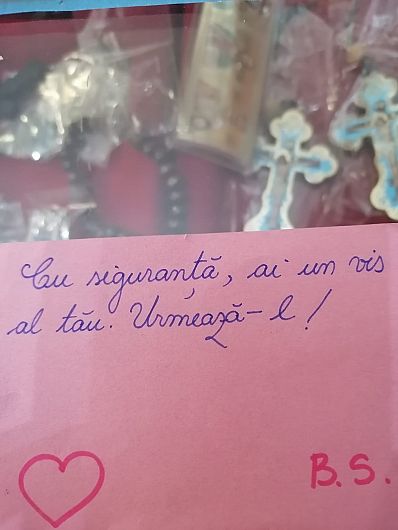 Cu siguranță, ai un vis
al tău. Urmează-l!
B.S.